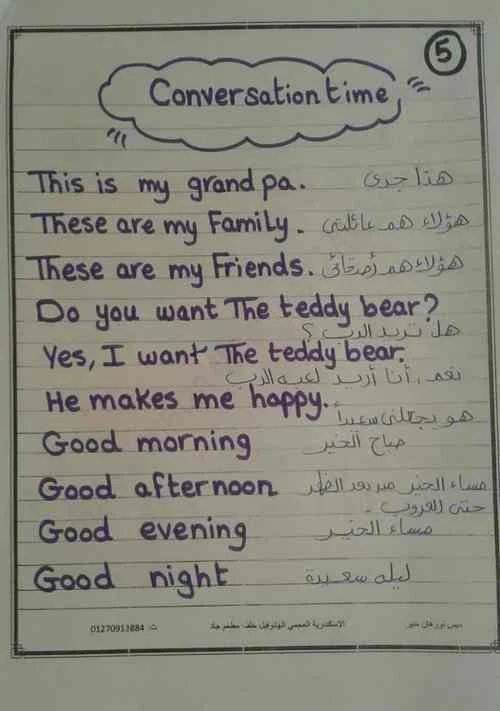 5
Conversation time
This is my grand pa. هذا جدى
These are my Family. هؤلاء هم عائلتى
These are my Friends. هؤلاء هم أصدقائى
Do you want The teddy bear?
هل تريد الدب ؟
Yes, I want The teddy bear.
نعم، أنا أريد لعبه الدب
He makes me happy. هو يجعلنى سعيداً
Good morning صباح الخير
Good afternoon مساء الخير من بعد الظهر
حتى الغروب .
Good evening مساء الخير
Good night ليله سعيدة
ميس نورهان منير الاسكندرية العجمي الهانوفيل خلف مطعم جاد ت: 01270913884